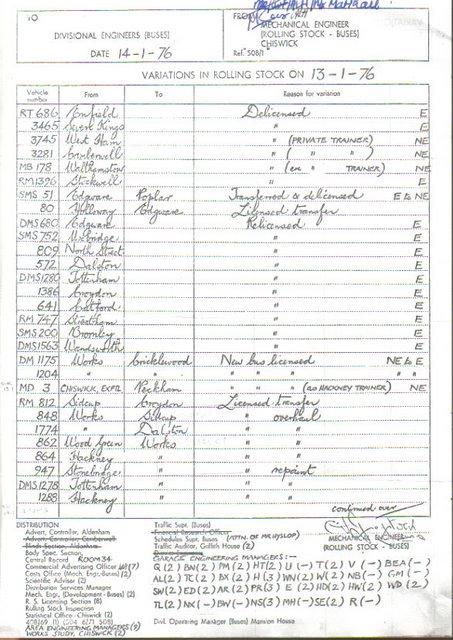 TO
DIVISIONAL ENGINEERS (BUSES)
DATE 14-1-76
FROM
MECHANICAL ENGINEER
(ROLLING STOCK - BUSES)
CHISWICK
Ref. 508/1
VARIATIONS IN ROLLING STOCK ON 13-1-76
Vehicle number From To Reason for variation
RT 686 Enfield Delicensed E
3465 Seven Kings " E
3745 West Ham " (PRIVATE TRAINER) NE
3281 Camberwell " ( " " ) NE
MB 178 Walthamstow " (ex " TRAINER) NE
RM 1396 Stockwell " E
SMS 51 Edgware Poplar Transferred & delicensed E & NE
80 Holloway Edgware Licensed transfer
DMS 680 Edgware Relicensed E
SMS 752 Uxbridge " E
809 North Street " E
572 Dalston " E
DMS 1280 Tottenham " E
1386 Croydon " E
641 Catford " E
RM 747 Streatham " E
SMS 200 Bromley " E
DMS 1563 Wandsworth " E
DM 1175 Works Cricklewood New bus licensed NE & E
1204 " " " " " " "
MD 3 CHISWICK, EXPTL Peckham " " " (as HACKNEY TRAINER) NE
RM 812 Sidcup Croydon Licensed transfer
848 Works Sidcup " overhaul
1774 " Dalston " "
862 Wood Green Works " "
864 Hackney " " "
947 Stonebridge " " repaint
DMS 1278 Tottenham " " "
1288 Hackney " " "
continued over
DISTRIBUTION
Advert. Controller, Aldenham
Advert. Controller Camberwell
Body Spec. Section,
Central Record ROOM 34
Commercial Advertising Officer (7)
Costs Office (Mech. Engr. Buses) (2)
Scientific Advisor (2)
Distribution Services Manager
Mech. Engr. (Development - Buses) (2)
R. S. Licensing Section (8)
Rolling Stock Inspection
Statistical Office - Chiswick (2)
AREA ENGINEERING MANAGERS (9)
WORKS STUDY, CHISWICK (2)
Traffic Supt. (Buses)
Financial Research Officer
Schedules Supt. (Buses) (ATTN. OF MR HYSLOP)
Traffic Auditor, Griffith House (2)
GARAGE ENGINEERING MANAGERS:-
Q (2) BN (2) PM (2) HT (2) U (-) T (2) V (-) BEA (-)
AL (2) TC (2) BX (2) H (3) WN (2) W (2) NB (-) GM (-)
SW (2) ED (2) AR (2) PR (3) E (2) HD (2) HW (2) WD (2)
TL (2) NX (-) BW (-) NS (3) MH (-) SE (2) R (-)
Divl. Operating Manager (Buses) Mansion House
MECHANICAL ENGINEER
(ROLLING STOCK - BUSES)